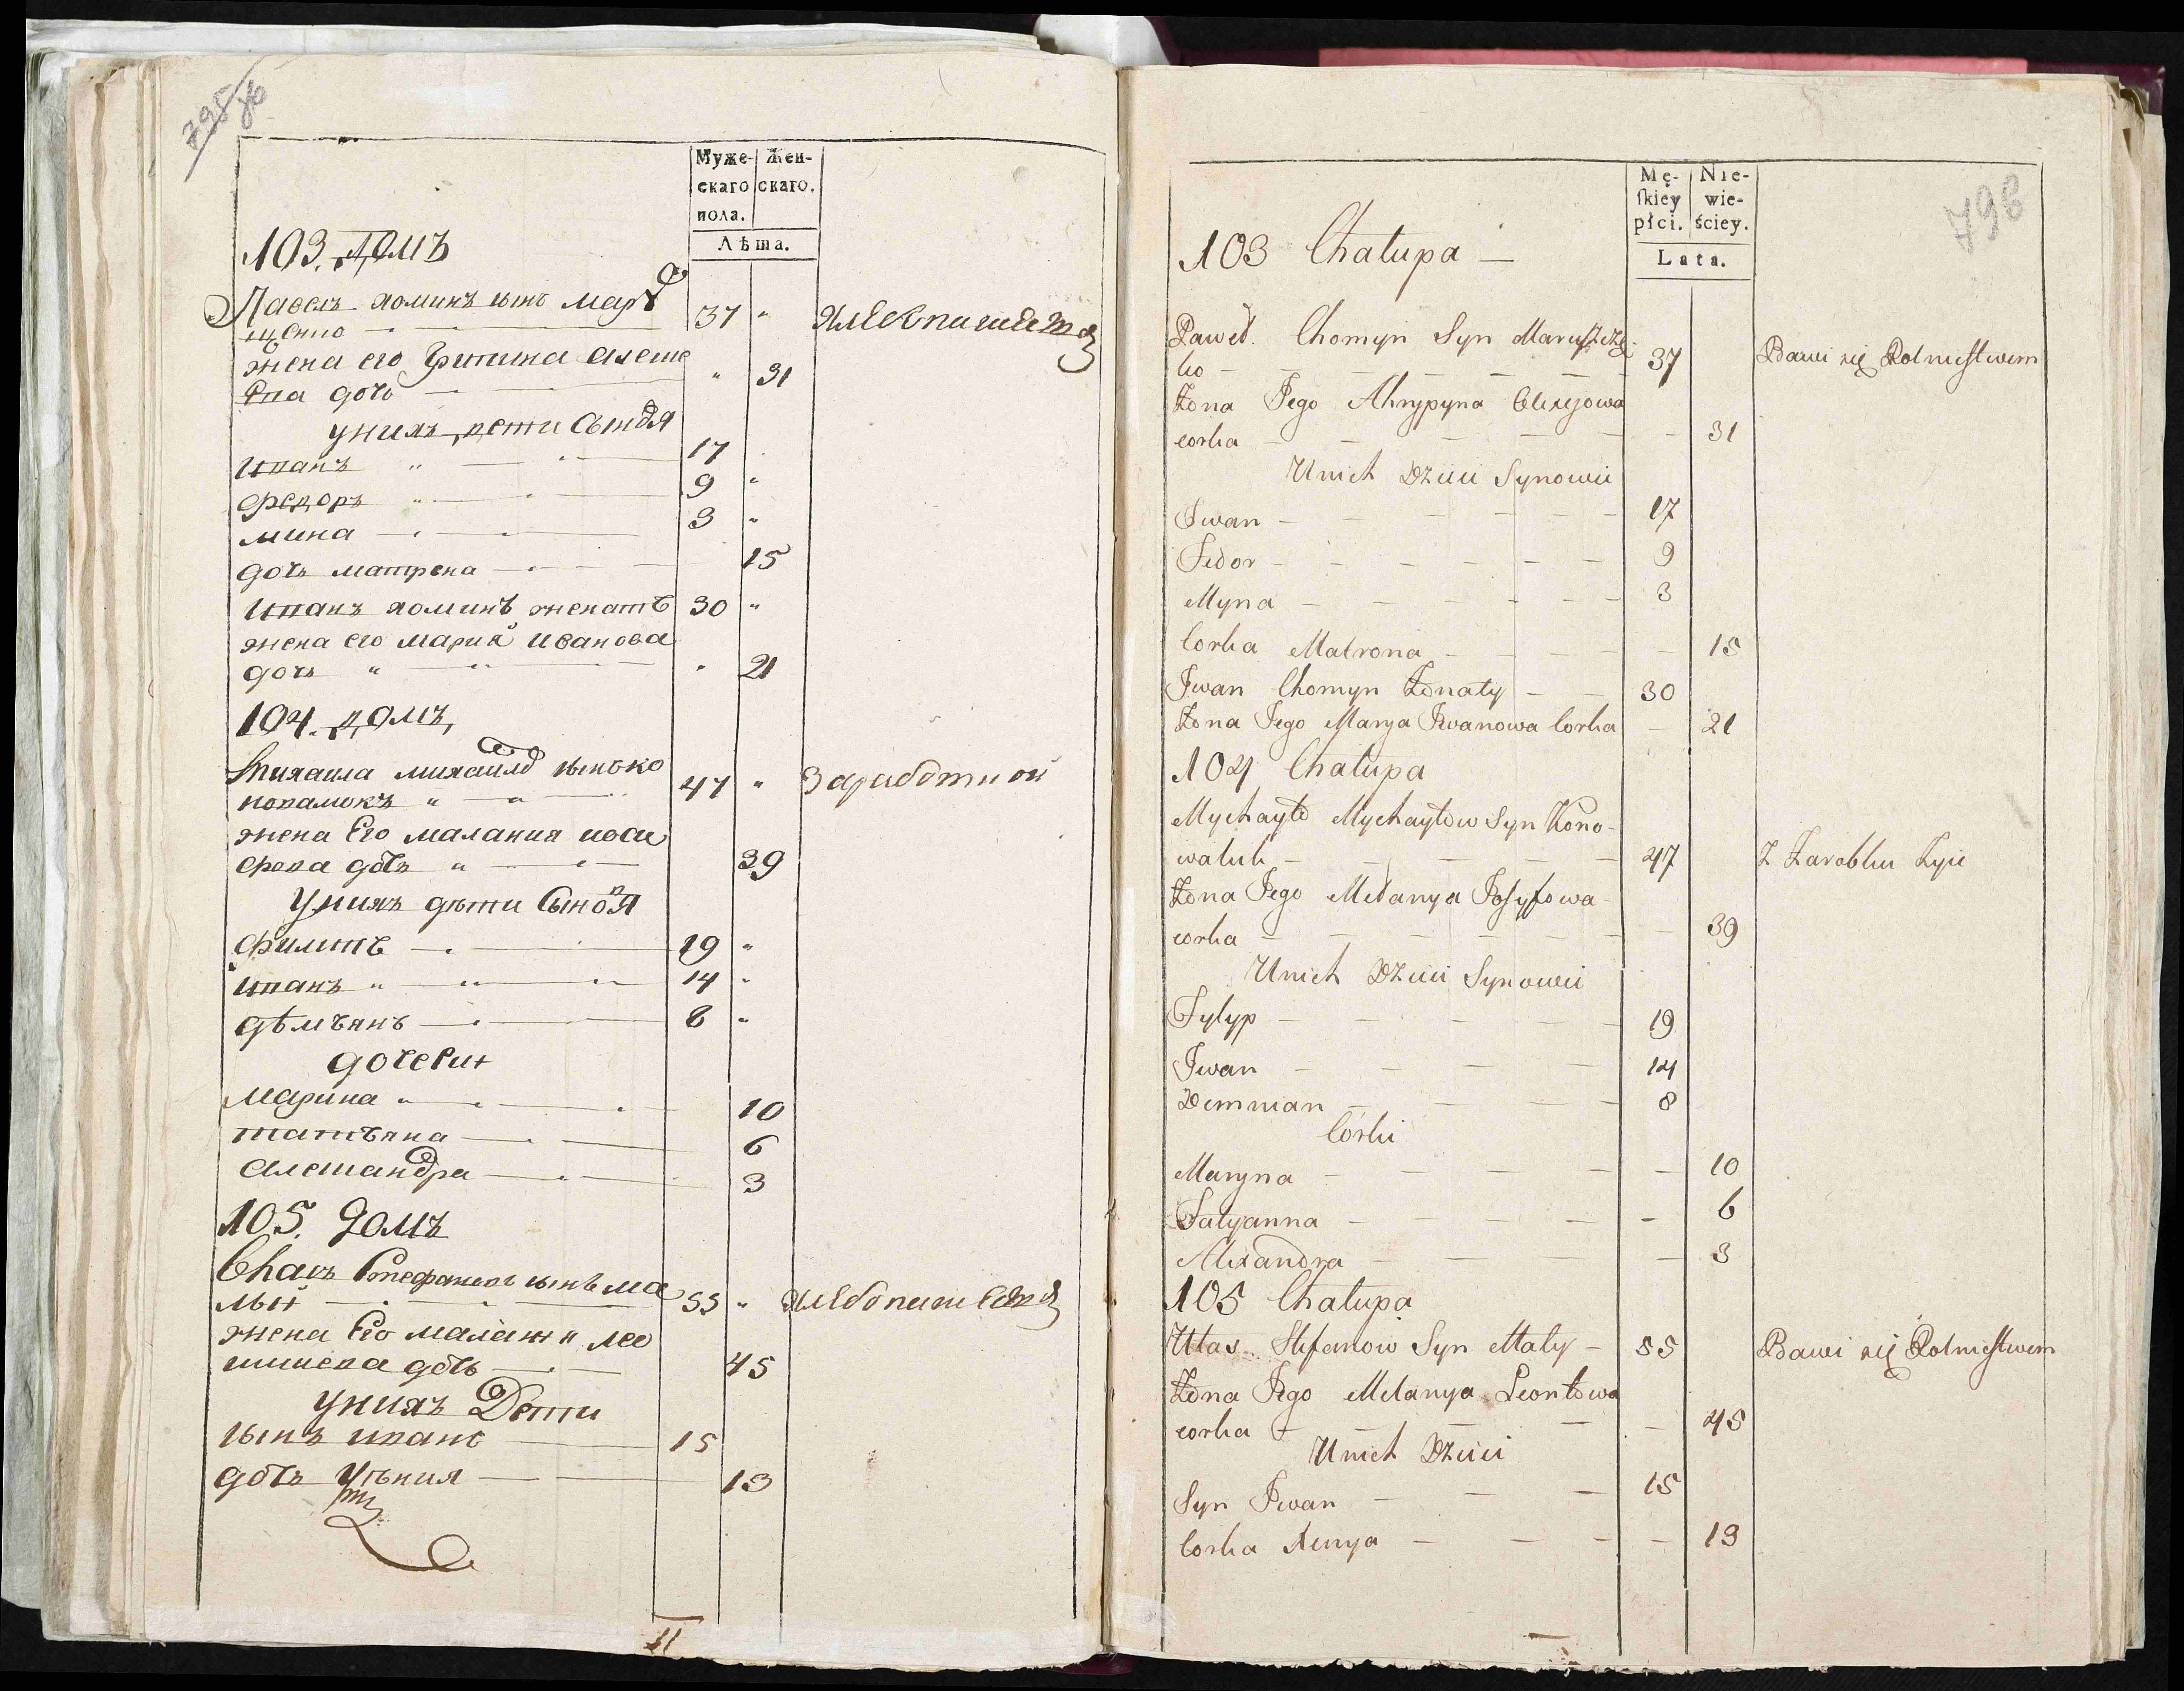 795
86
Муже-
скаго
пола.
Жен-
скаго.
Лѣта.
103. домъ
Павелъ хоминъ сынъ Мару
щенко
37 "
хлебопашеств
жена его Грипина алеше
ева дочь
" 31
у них дети Сыновя
иванъ " 17
федоръ " 9 "
мина 3 "
дочь матрена 15
иванъ хоминъ женатъ 30 "
жена его мария иванова
дочь " " 21
104. домъ,
Михаила михайлов сынъ ко
новалюкъ " 47 " Заработной
жена Его малания иоси
фова дочь " 39
У них дѣти Сыновя
филипъ 19 "
иванъ " 14 "
дѣмьянъ 8 "
дочери
марина " 10
татьяна 6
александра 3
105. домъ
Влась Стефановъ сынъ ма
лый 55 " хлебопашеств
жена Его малания лео
нтиева дочь 45
у нихъ Дети
сынъ иванъ 15
дочь 13
11
796
Mę-
ſkiey
płci.
Nie-
wie-
ściey.
Lata.
103 Chałupa —
Paweł. Chomyn Syn Maruszcze-
ko — 37 Bawi się Rolnictwem
Żona Jego Ahrypyna Olexejowa
corka — 31
Unich Dzieci Synowie
Jwan — 17
Fedor — 9
Myna — 3
Corka Matrona — 15
Jwan Chomyn Żonaty — 30
Żona Jego Marya Jwanowa Corka — 21
104 Chałupa
Mychayło Mychayłow Syn Kono-
waluk — 47 Z Zarobku Żyie
Żona Jego Melanya Josyfowa
corka — 39
Unich Dzieci Synowie
Fylyp — 19
Jwan — 14
Demnian — 8
Córki
Maryna — 10
Tatyanna — 6
Alexandra — 3
105 Chałupa
Ułas Stefanow Syn Mały — 55 Bawi się Rolnictwem
Żona Jego Melanya Leontowa
corka — 45
Unich Dzieci
Syn Jwan — 15
Corka Xenya — 13